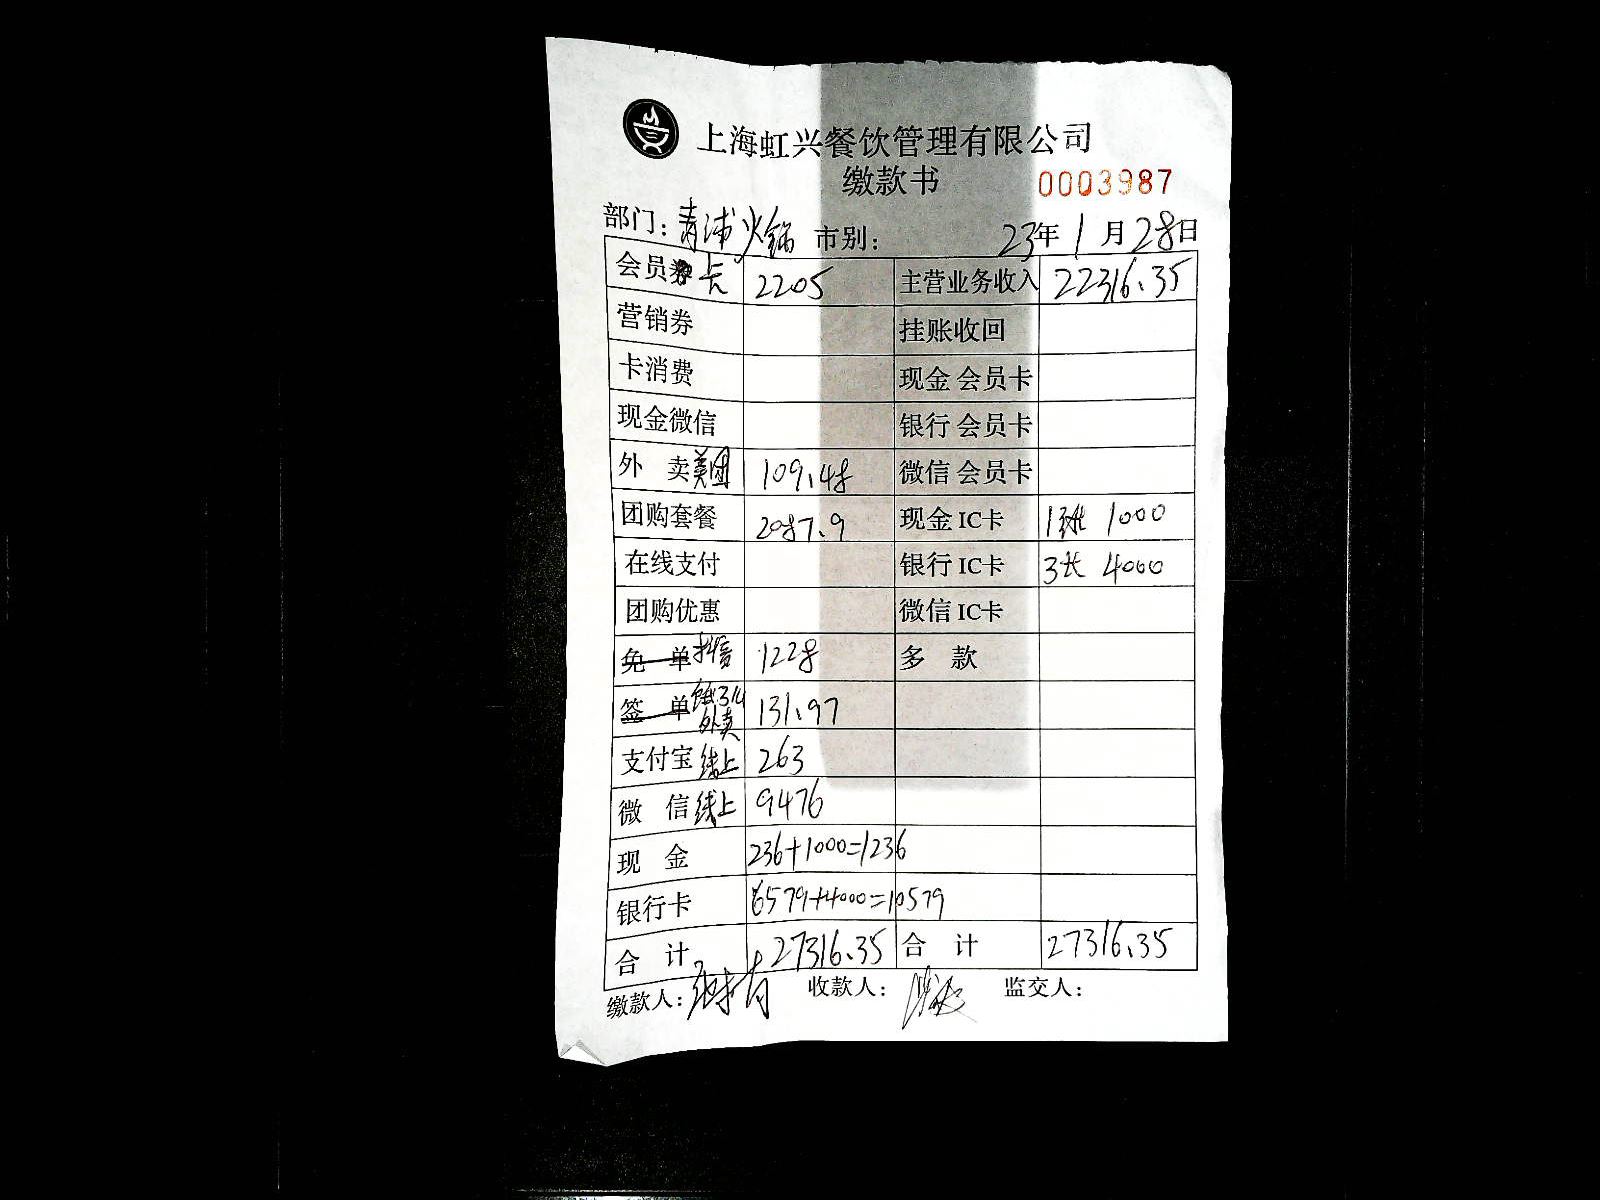 上海虹兴餐饮管理有限公司
缴款书 0003987
部门：青浦火锅 市别： 23年1月28日
会员卡 2205 主营业务收入 22316.35
营销券 挂账收回
卡消费 现金 会员卡
现金微信 银行 会员卡
外 卖美团 109.48 微信 会员卡
团购套餐 2087.9 现金 IC卡 1张 1000
在线支付 银行 IC卡 3张 4000
团购优惠 微信 IC卡
免 单 抖音 1228 多 款
签 单 外卖 131.97
支付宝 线上 263
微 信 线上 9476
现 金 236+1000=1236
银行卡 6579+4000=10579
合 计 27316.35 合 计 27316.35
缴款人： 收款人： 监交人：